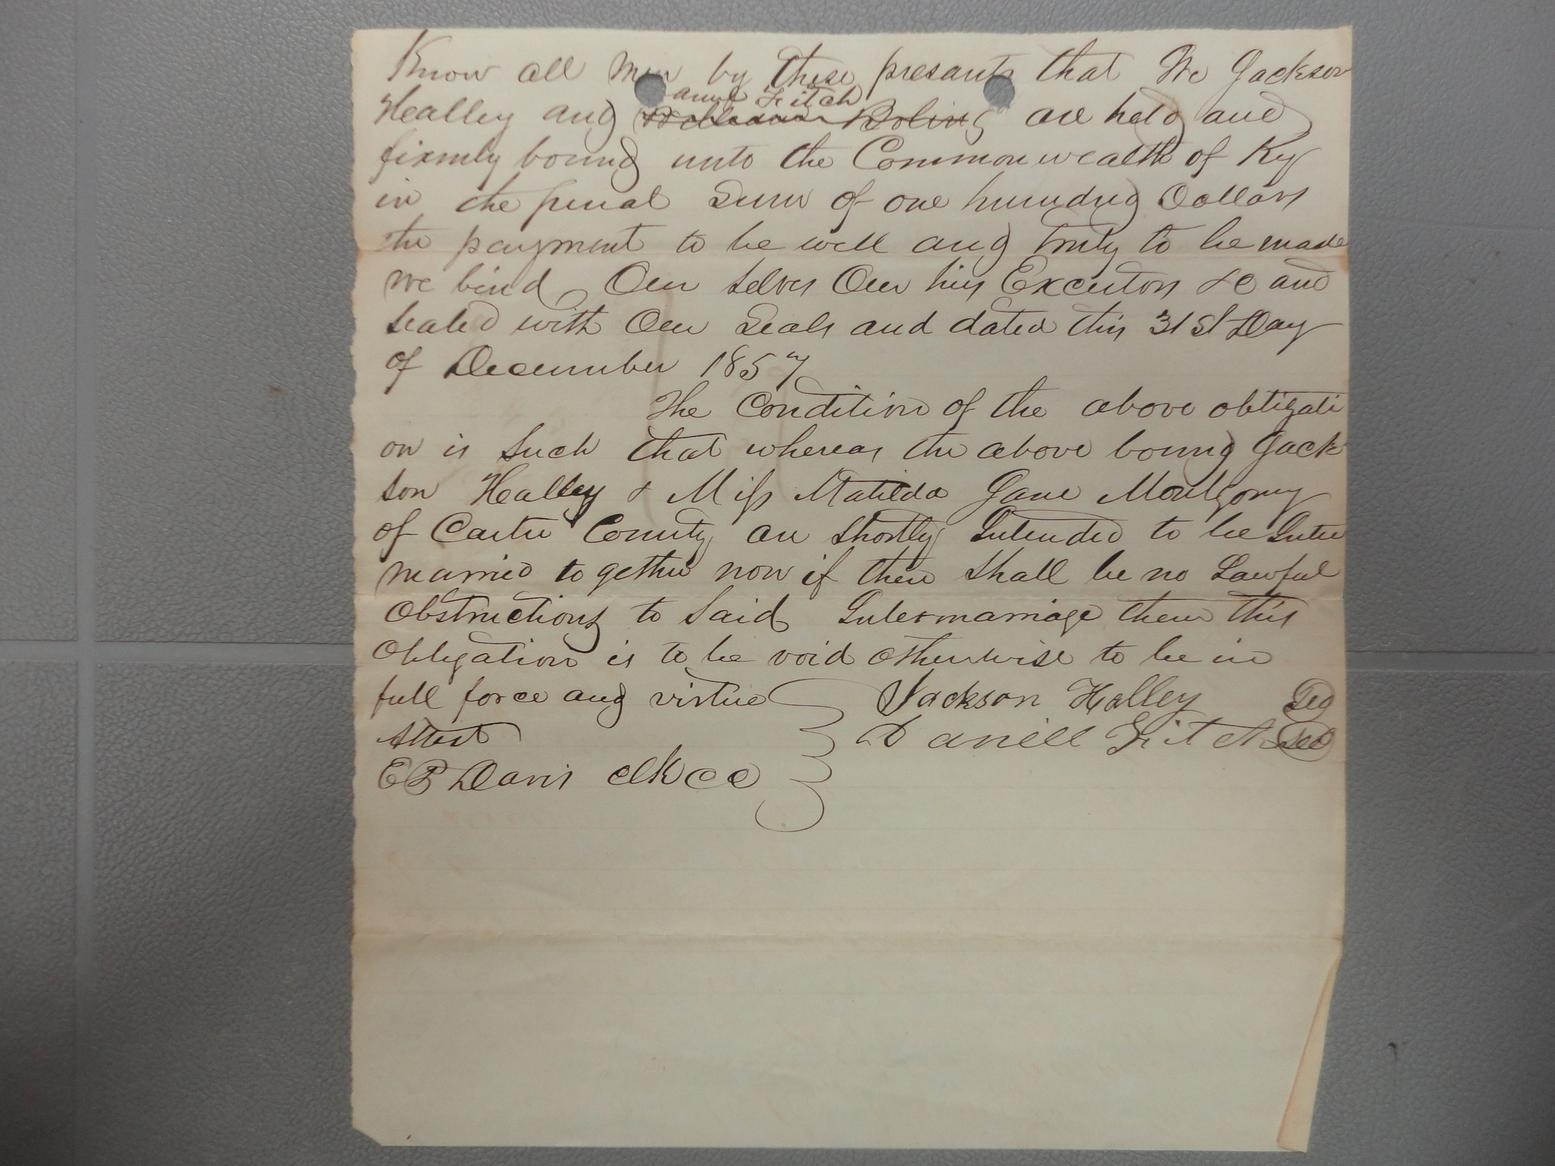 Know all men by these presants that We Jackson
Healley and Fitch Boling are held and
firmly bound unto the Commonwealth of Ky
in the penal Sum of one hundred Dollars
the payment to be well and truly to be made
we bind Our selves Our hirs Executors &c and
Sealed with Our Seals and dated this 31st Day
of December 1857
The Condition of the above obligati
on is Such that whereas the above bound Jack
son Halley & Miss Matilda Jane Montgomy
of Carter County are Shortly Intended to be Inter
married together now if there shall be no Lawful
Obstructions to Said Intermarriage then this
Obligation is to be void otherwise to be in
full force and virtue Jackson Halley Seal
Attest Daniell Fitch Seal
E P Davis clk C C